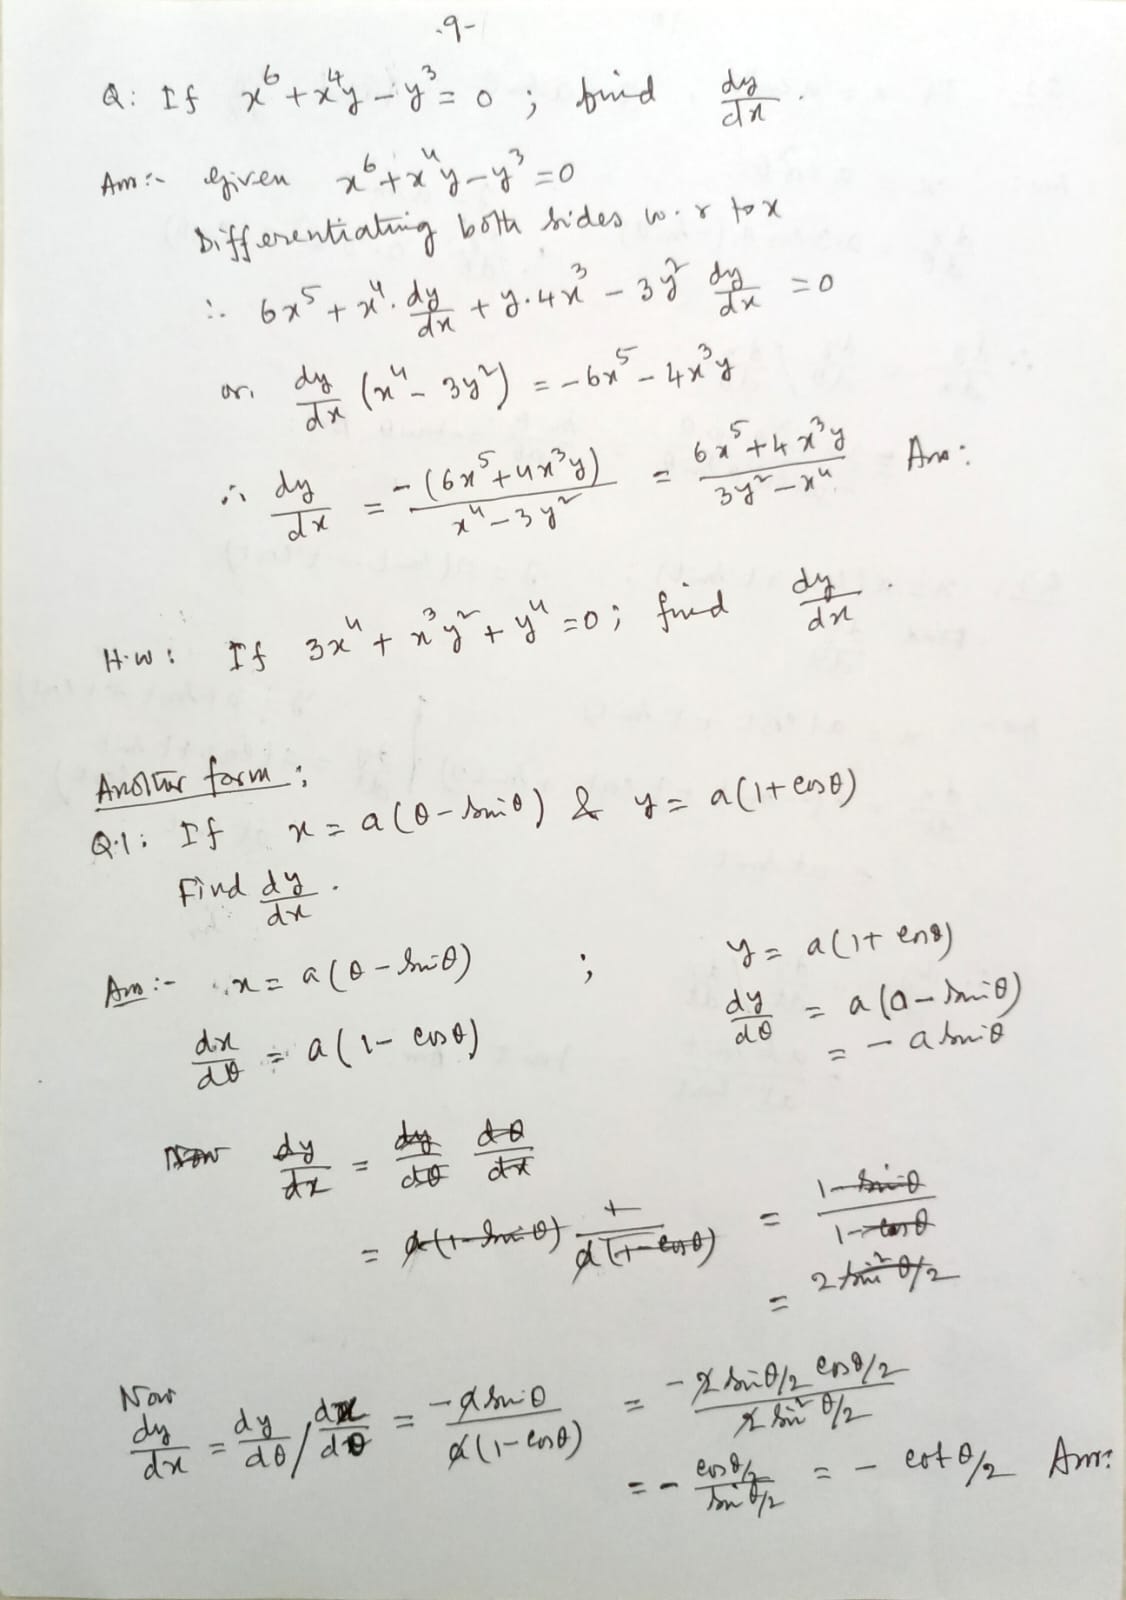 -9-
Q: If x⁶ + x⁴y - y³ = 0 ; find dy/dx .
Ans:- Given x⁶ + x⁴y - y³ = 0
Differentiating both sides w.r to x
∴ 6x⁵ + x⁴. dy/dx + y.4x³ - 3y² dy/dx = 0
or, dy/dx (x⁴ - 3y²) = -6x⁵ - 4x³y
∴ dy/dx = -(6x⁵ + 4x³y)/(x⁴ - 3y²) = (6x⁵ + 4x³y)/(3y² - x⁴) Ans:
H.W: If 3x⁴ + x³y² + y⁴ = 0 ; find dy/dx .
Another form:
Q.1: If x = a(θ - sinθ) & y = a(1 + cosθ)
Find dy/dx .
Ans:- x = a(θ - sinθ) ; y = a(1 + cosθ)
dx/dθ = a(1 - cosθ) dy/dθ = a(0 - sinθ)
= - a sinθ
Now dy/dx = dy/dθ dθ/dx
= a(1 - sinθ) 1/(a(1 - cosθ)) = (1 - sinθ)/(1 - cosθ)
= 2 sin² θ/2
Now
dy/dx = dy/dθ / dx/dθ = -a sinθ/(a(1 - cosθ)) = -2 sinθ/2 cosθ/2 / (2 sin² θ/2)
= - cosθ/2 / sinθ/2 = - cot θ/2 Ans: